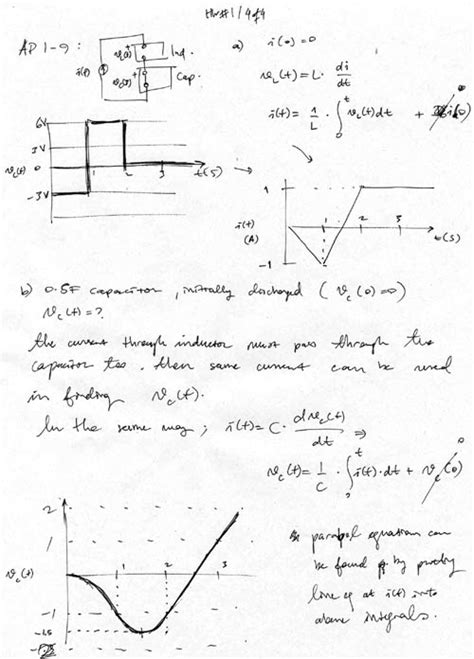 HW#1/4of4
AP 1-9 :
i(t)
v_L(t)
Ind.
v_c(t)
Cap.
a) i(0)=0
v_L(t)=L· di/dt
i(t)= 1/L · ∫_0^t v_L(t)dt + i(0) 0
6V
3V
v_L(t) 0
-3V
1 2 3 t(s)
1
i(t)
(A)
-1
1 2 3 t(s)
b) 0.5F capacitor, initially discharged (v_c(0)=0)
v_c(t)=?
the current through inductor must pass through the
capacitor too. then same current can be used
in finding v_c(t).
In the same way; i(t)=C· dv_c(t)/dt ⇒
v_c(t)= 1/C · ∫_0^t i(t)·dt + v_c(0) 0
2
1
v_c(t)
-1
-1.5
1 2 3
parabol equation can
be found by putting
line eq at i(t) into
above integrals.